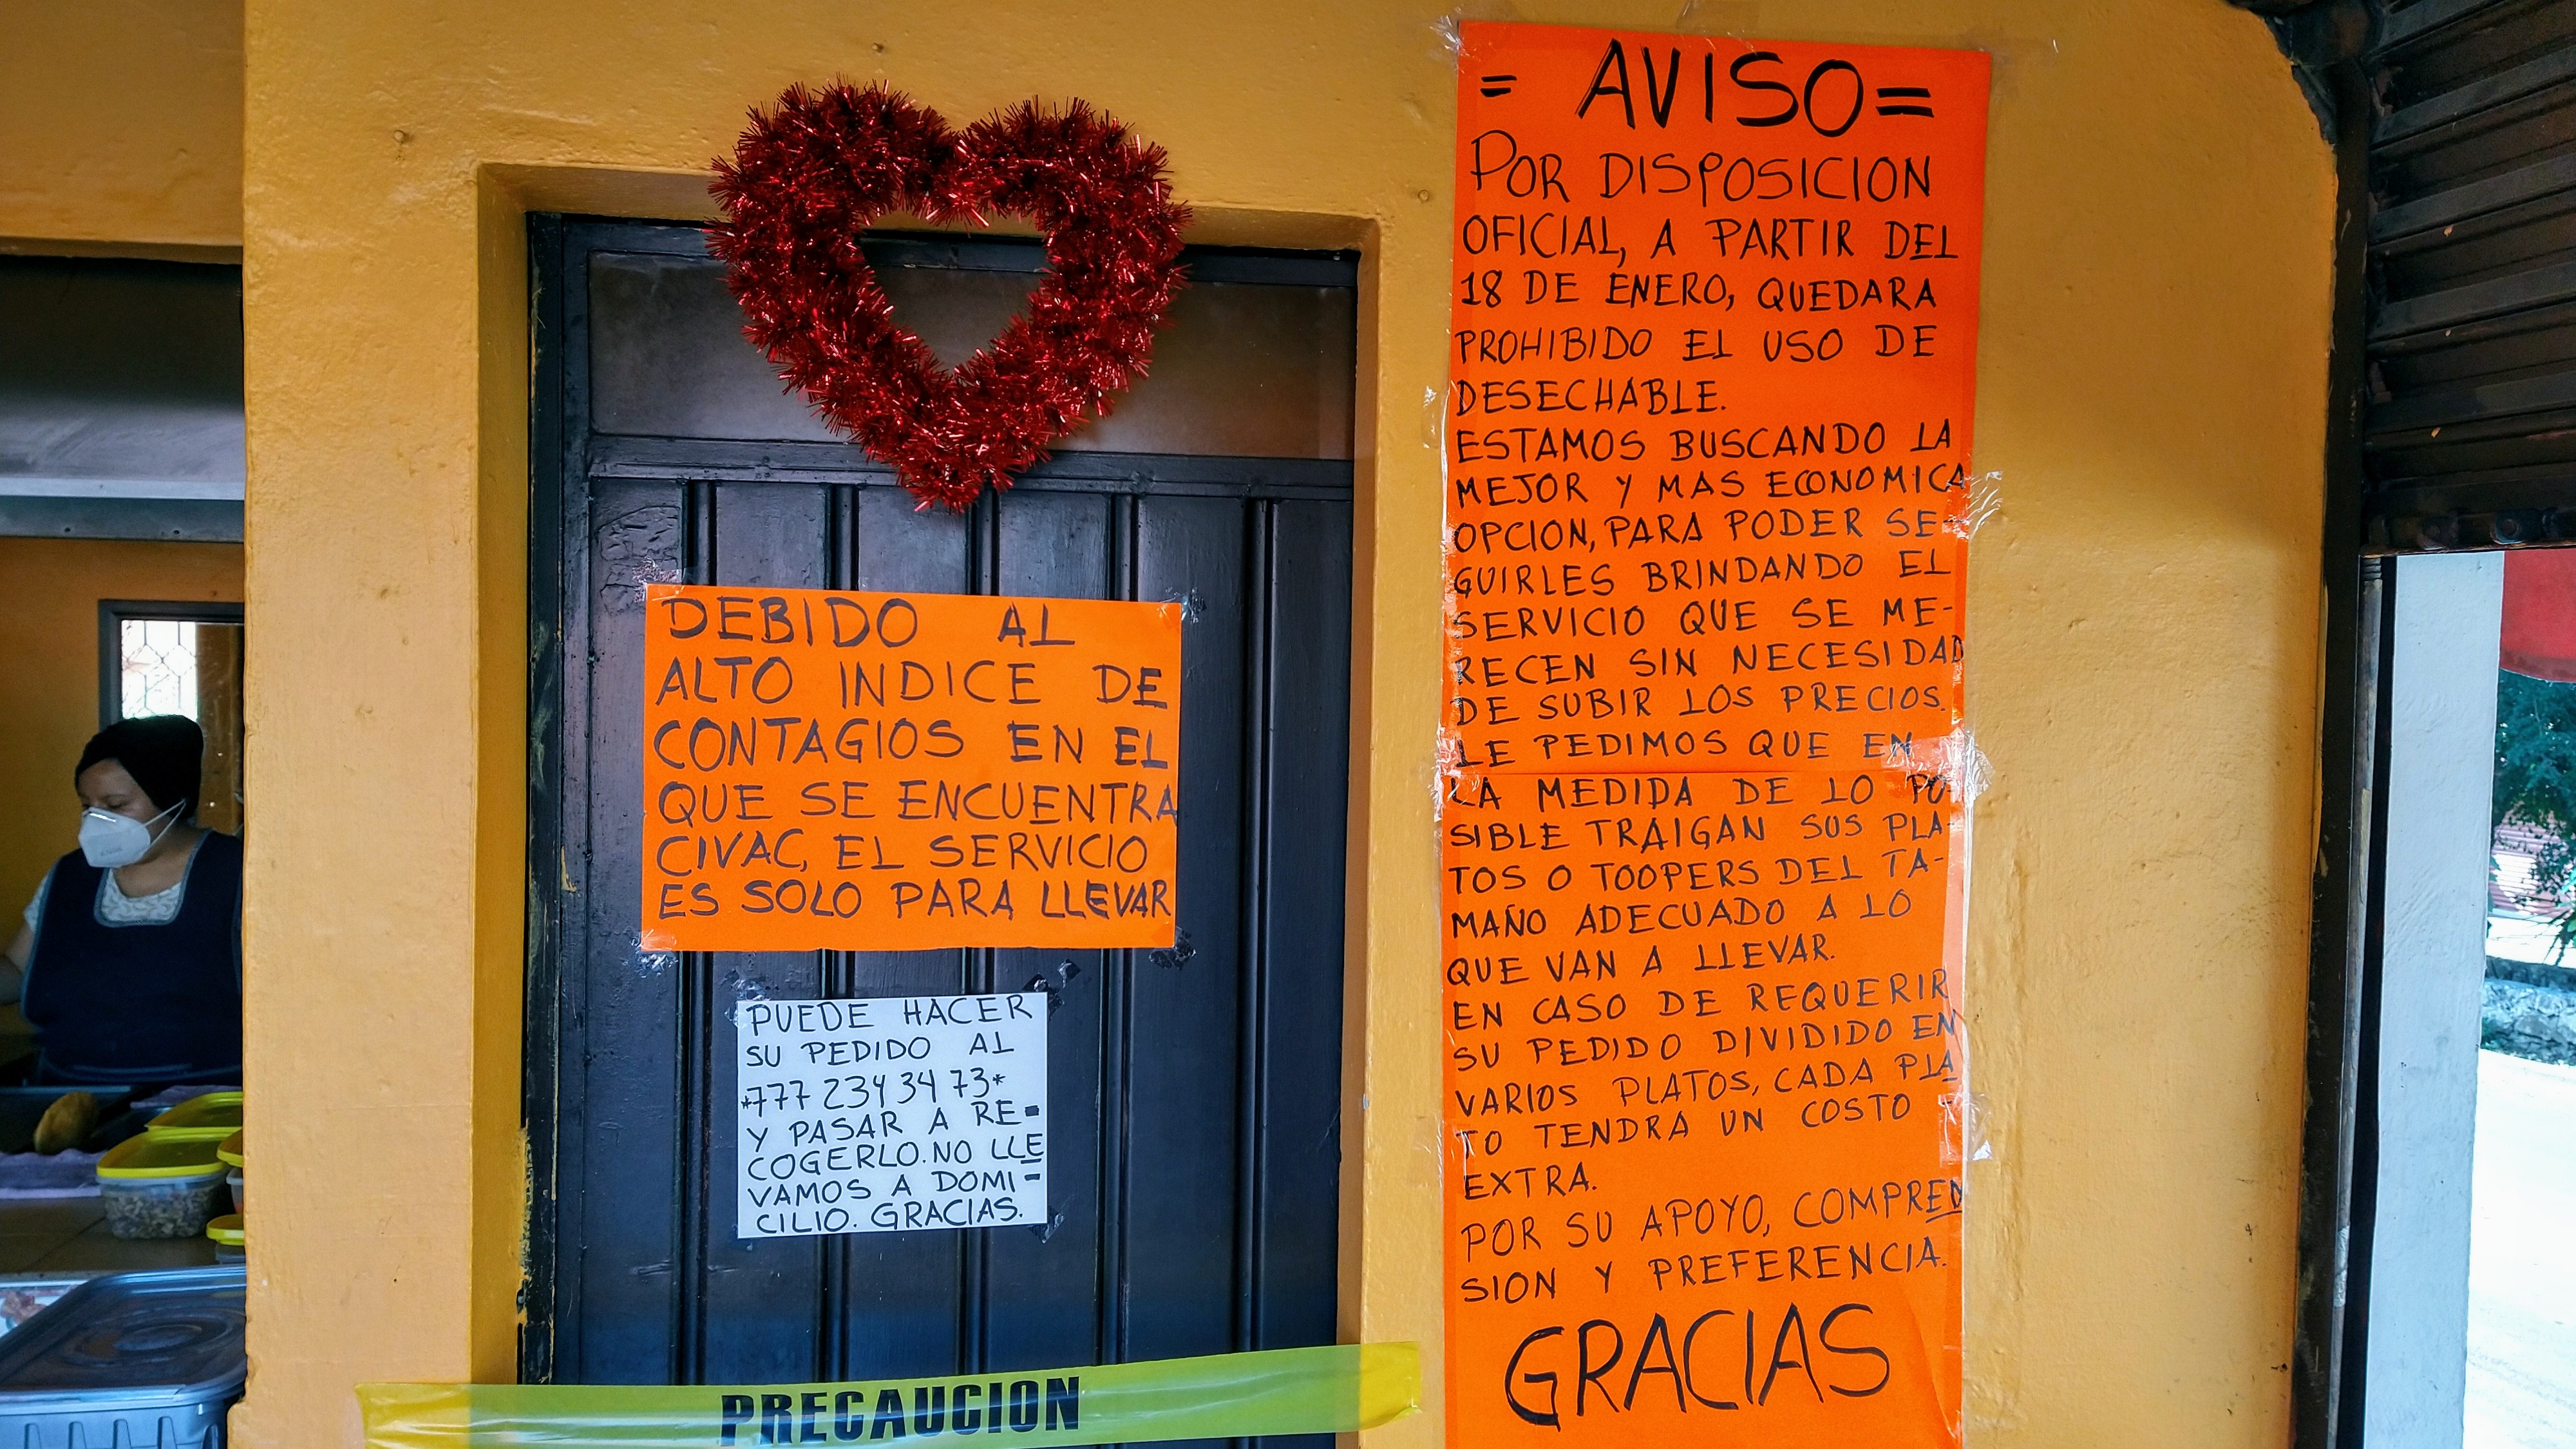 DEBIDO AL
ALTO INDICE DE
CONTAGIOS EN EL
QUE SE ENCUENTRA
CIVAC, EL SERVICIO
ES SOLO PARA LLEVAR
PUEDE HACER
SU PEDIDO AL
*777 234 34 73*
Y PASAR A RE-
COGERLO. NO LLE
VAMOS A DOMI-
CILIO. GRACIAS.
PRECAUCION
= AVISO =
POR DISPOSICION
OFICIAL, A PARTIR DEL
18 DE ENERO, QUEDARA
PROHIBIDO EL USO DE
DESECHABLE.
ESTAMOS BUSCANDO LA
MEJOR Y MAS ECONOMICA
OPCION, PARA PODER SE-
GUIRLES BRINDANDO EL
SERVICIO QUE SE ME-
RECEN SIN NECESIDAD
DE SUBIR LOS PRECIOS.
LE PEDIMOS QUE EN
LA MEDIDA DE LO PO-
SIBLE TRAIGAN SUS PLA-
TOS O TOOPERS DEL TA-
MAÑO ADECUADO A LO
QUE VAN A LLEVAR.
EN CASO DE REQUERIR
SU PEDIDO DIVIDIDO EN
VARIOS PLATOS, CADA PLA
TO TENDRA UN COSTO -
EXTRA.
POR SU APOYO, COMPREN
SION Y PREFERENCIA.
GRACIAS